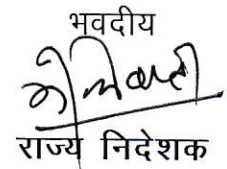 भवदीय
राज्य निदेशक